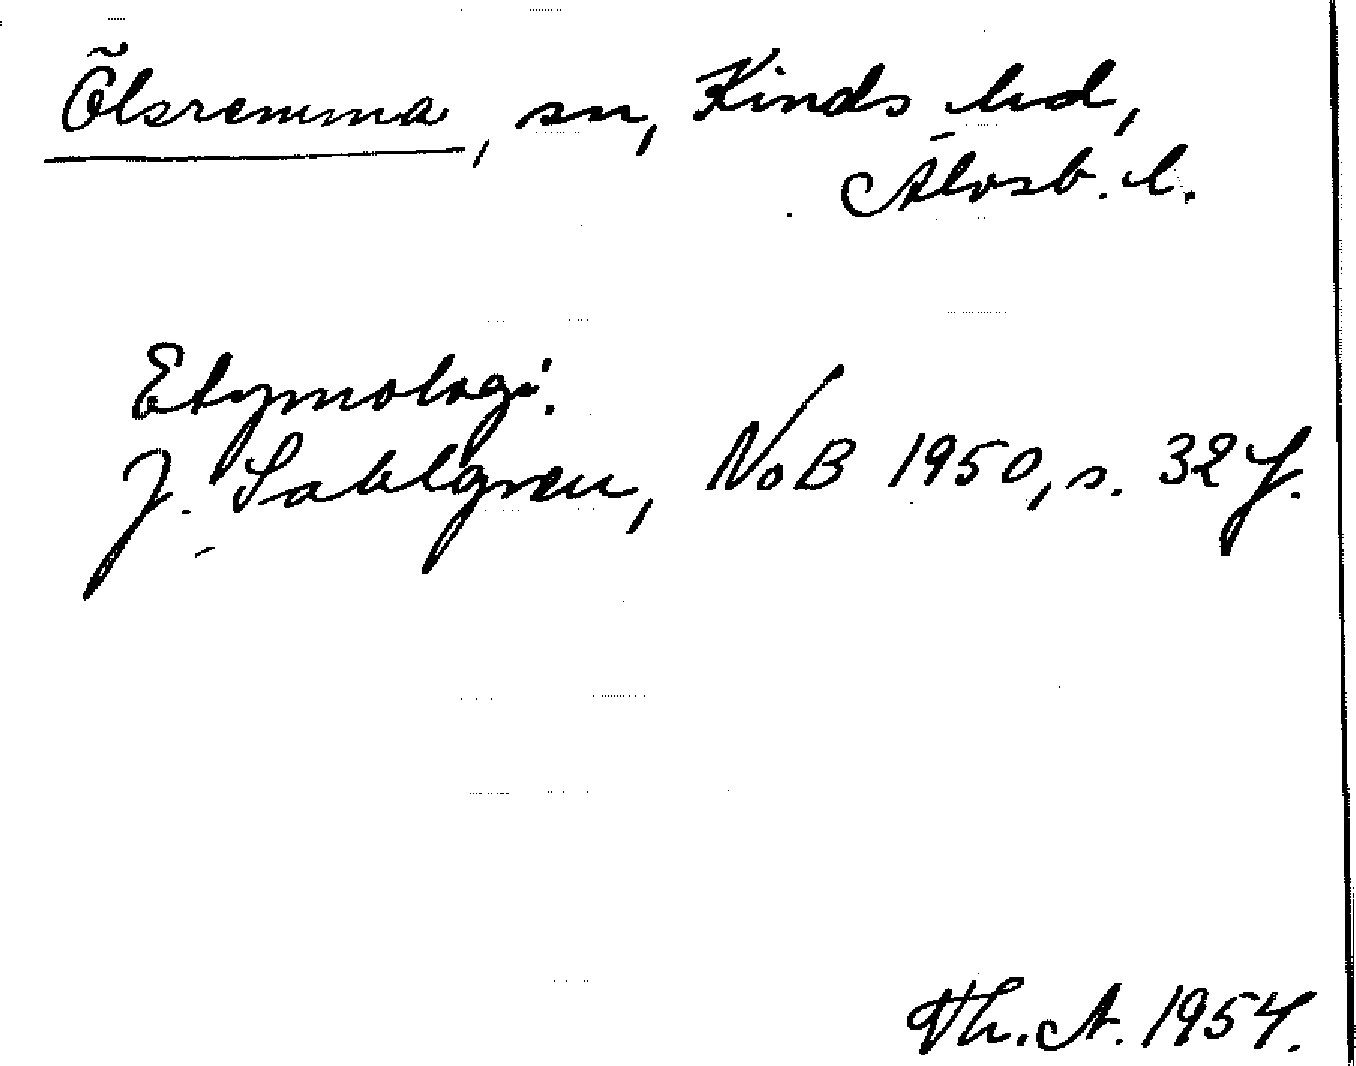 Ölsremma, sn, Kinds hd,
Älvsb. l.
Etymologi.
J. Sahlgren, NoB 1950, s. 32 f.
Th. A. 1954.